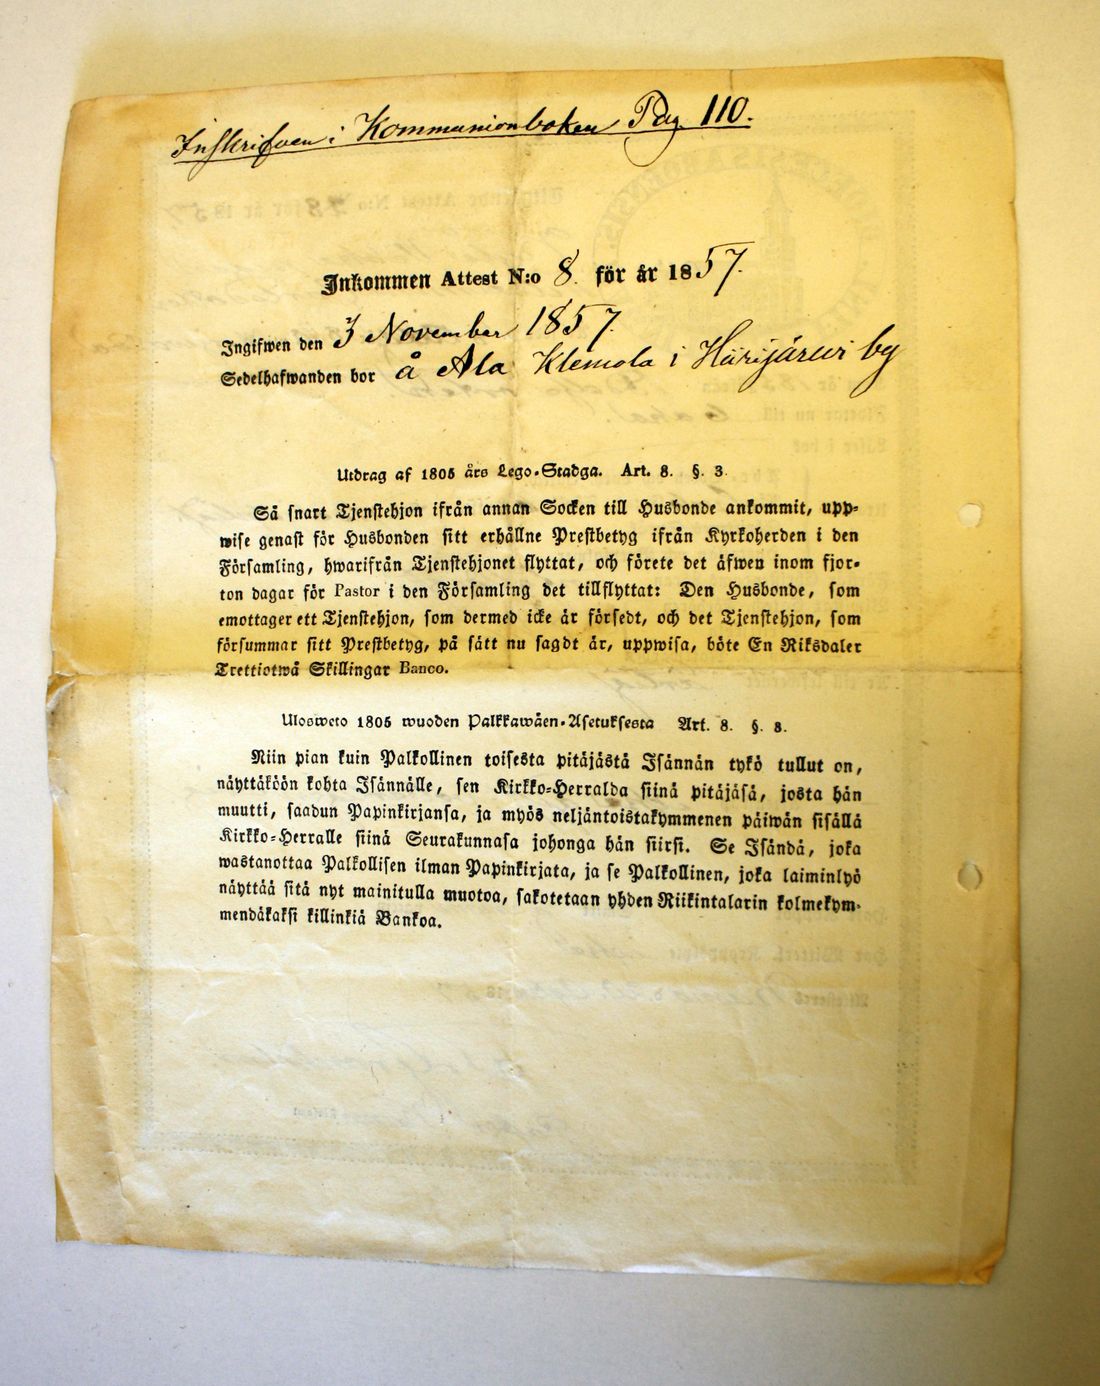 Inskrifven i Kommunionboken Pag. 110.
Inkommen Attest N:o 8. för år 1857.
Ingifwen den 3 November 1857.
Sedelhafwanden bor å Ala Klemola i Hiirijärwi by
Utdrag af 1805 års Lego-Stadga. Art. 8. §. 3.
Så snart Tjenstehjon ifrån annan Socken till Husbonde ankommit, upp-
wise genast för Husbonden sitt erhållne Prestbetyg ifrån Kyrkoherden i den
Församling, hwarifrån Tjenstehjonet flyttat, och förete det äfwen inom fjor-
ton dagar för Pastor i den Församling det tillflyttat: Den Husbonde, som
emottager ett Tjenstehjon, som dermed icke är försedt, och det Tjenstehjon, som
försummar sitt Prestbetyg, på sätt nu sagdt är, uppwisa, böte En Riksdaler
Trettiotwå Skillingar Banco.
Ulosweto 1805 wuoden Palkkawäen-Asetuksesta Art. 8. §. 3.
Niin pian kuin Palkollinen toisesta pitäjästä Isännän tykö tullut on,
näyttäköön kohta Isännälle, sen Kirkko-Herralda siinä pitäjäsä, josta hän
muutti, saadun Papinkirjansa, ja myös neljäntoistakymmenen päiwän sisällä
Kirkko-Herralle siinä Seurakunnasa johonga hän siirsi. Se Isändä, joka
wastanottaa Palkollisen ilman Papinkirjata, ja se Palkollinen, joka laiminlyö
näyttää sitä nyt mainitulla muotoa, sakotetaan yhden Riikintalarin kolmekym-
mendäkaksi killinkiä Bankoa.